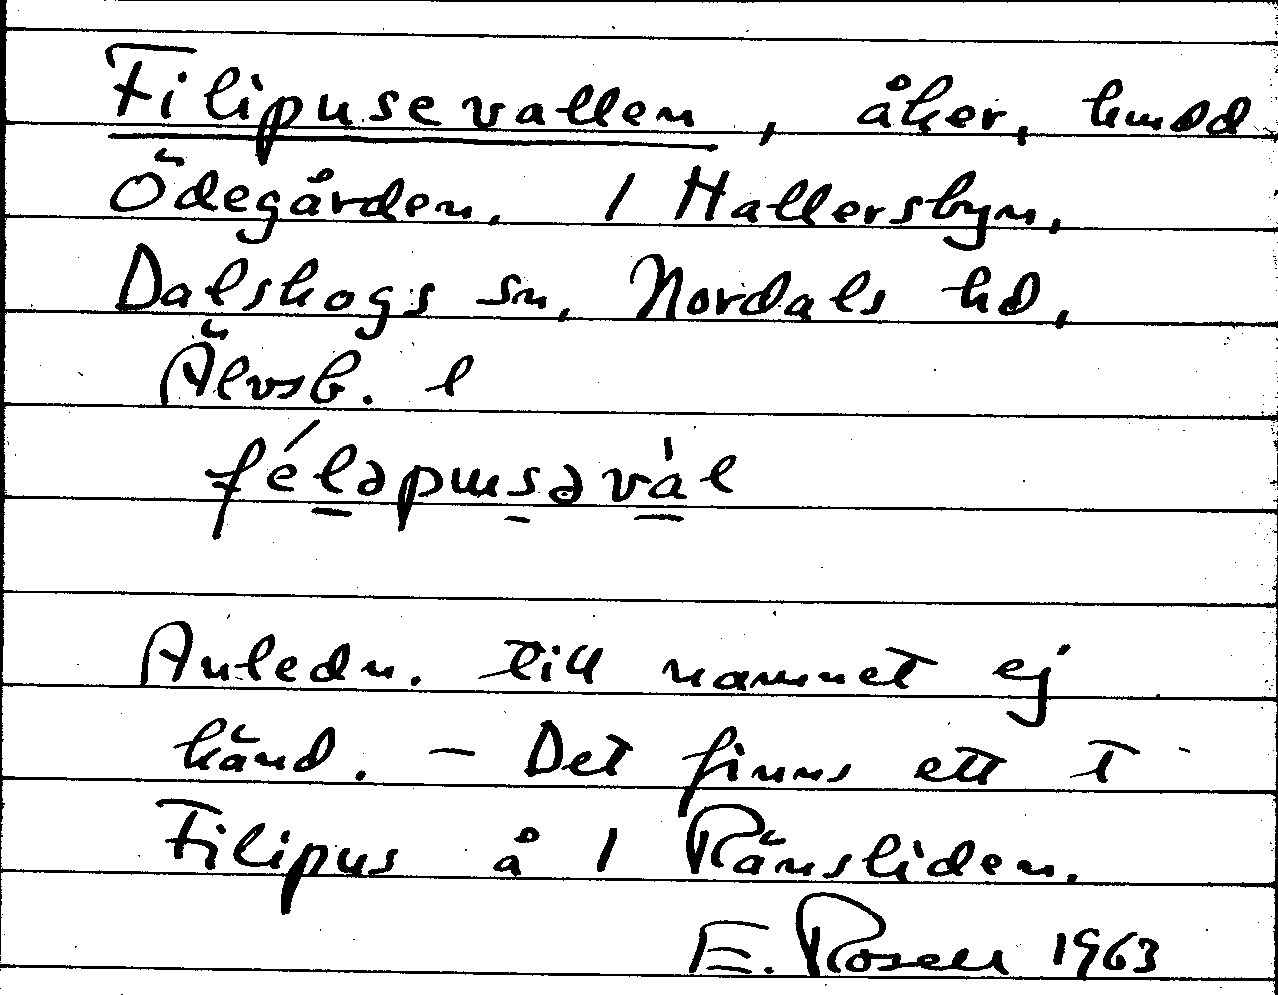 Filipusevallen, åker, hmsd
Ödegården. 1 Hallersbyn,
Dalskogs sn, Nordals hd,
Älvsb. l
féləpusəvàl
Anledn. till namnet ej
känd. – Det finns ett t
Filipus å 1 Ränsliden.
E. Rosell 1963